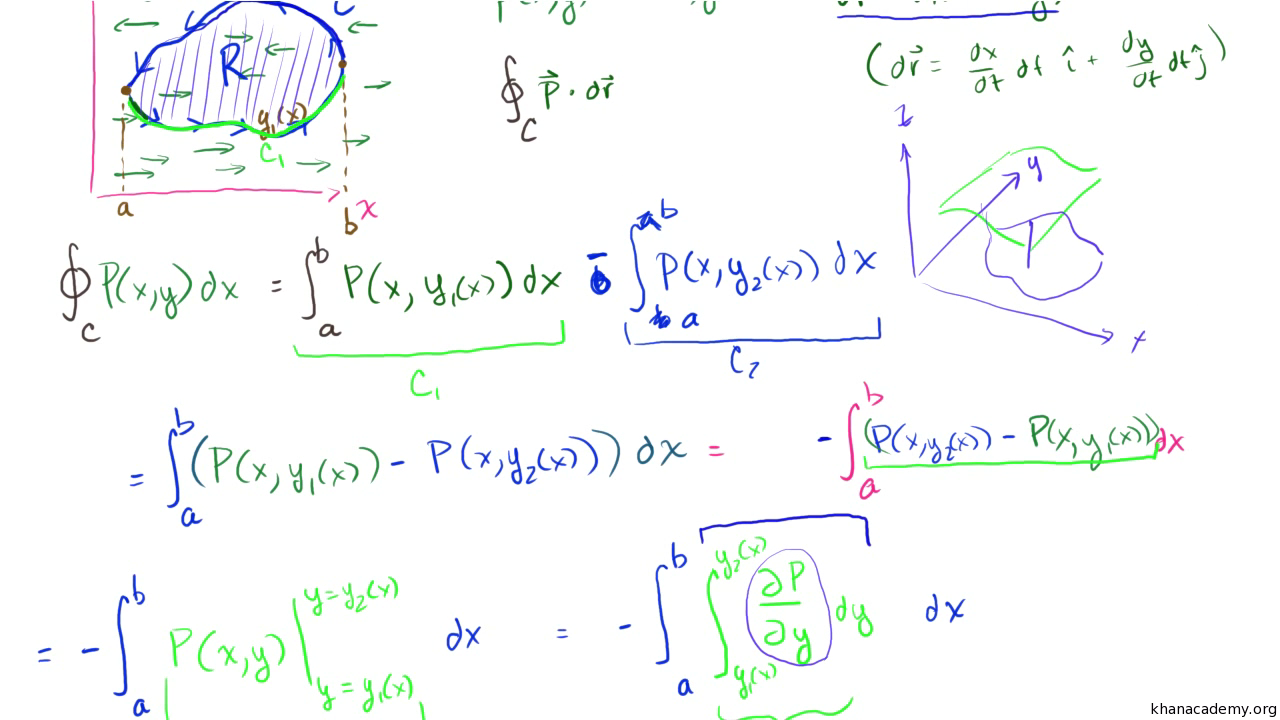 R
y₁(x)
C₁
a
b
x
∮_C P⃗ · dr⃗
(dr⃗ = dx/dt dt î + dy/dt dt ĵ)
z
y
x
∮_C P(x,y) dx = ∫_a^b P(x, y₁(x)) dx - ∫_a^b P(x, y₂(x)) dx
C₁
C₂
= ∫_a^b (P(x, y₁(x)) - P(x, y₂(x))) dx = -∫_a^b (P(x, y₂(x)) - P(x, y₁(x))) dx
= -∫_a^b P(x,y) |_{y = y₁(x)}^{y = y₂(x)} dx = -∫_a^b ∫_{y₁(x)}^{y₂(x)} ∂P/∂y dy dx
khanacademy.org